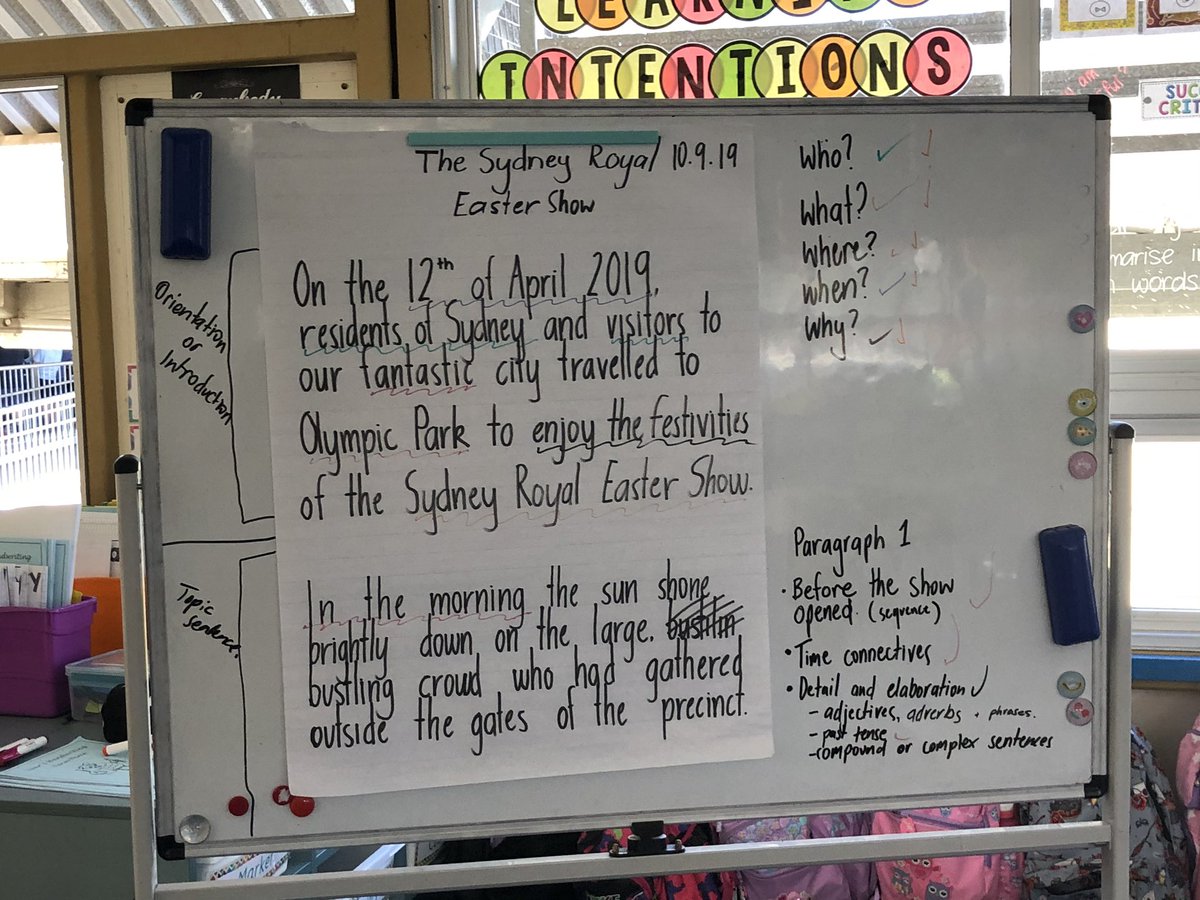 LEARNING
INTENTIONS
SUCC
CRIT
The Sydney Royal 10.9.19
Easter Show
Orientation
or
Introduction
On the 12th of April 2019,
residents of Sydney and visitors to
our fantastic city travelled to
Olympic Park to enjoy the festivities
of the Sydney Royal Easter Show.
Topic
sentence.
In the morning the sun shone
brightly down on the large, bustlin
bustling crowd who had gathered
outside the gates of the precinct.
Who?
What?
where?
when?
Why?
Paragraph 1
• Before the show
opened. (sequence)
• Time connectives
• Detail and elaboration
- adjectives, adverbs + phrases.
- past tense
- compound or complex sentences
marise in
words
Market